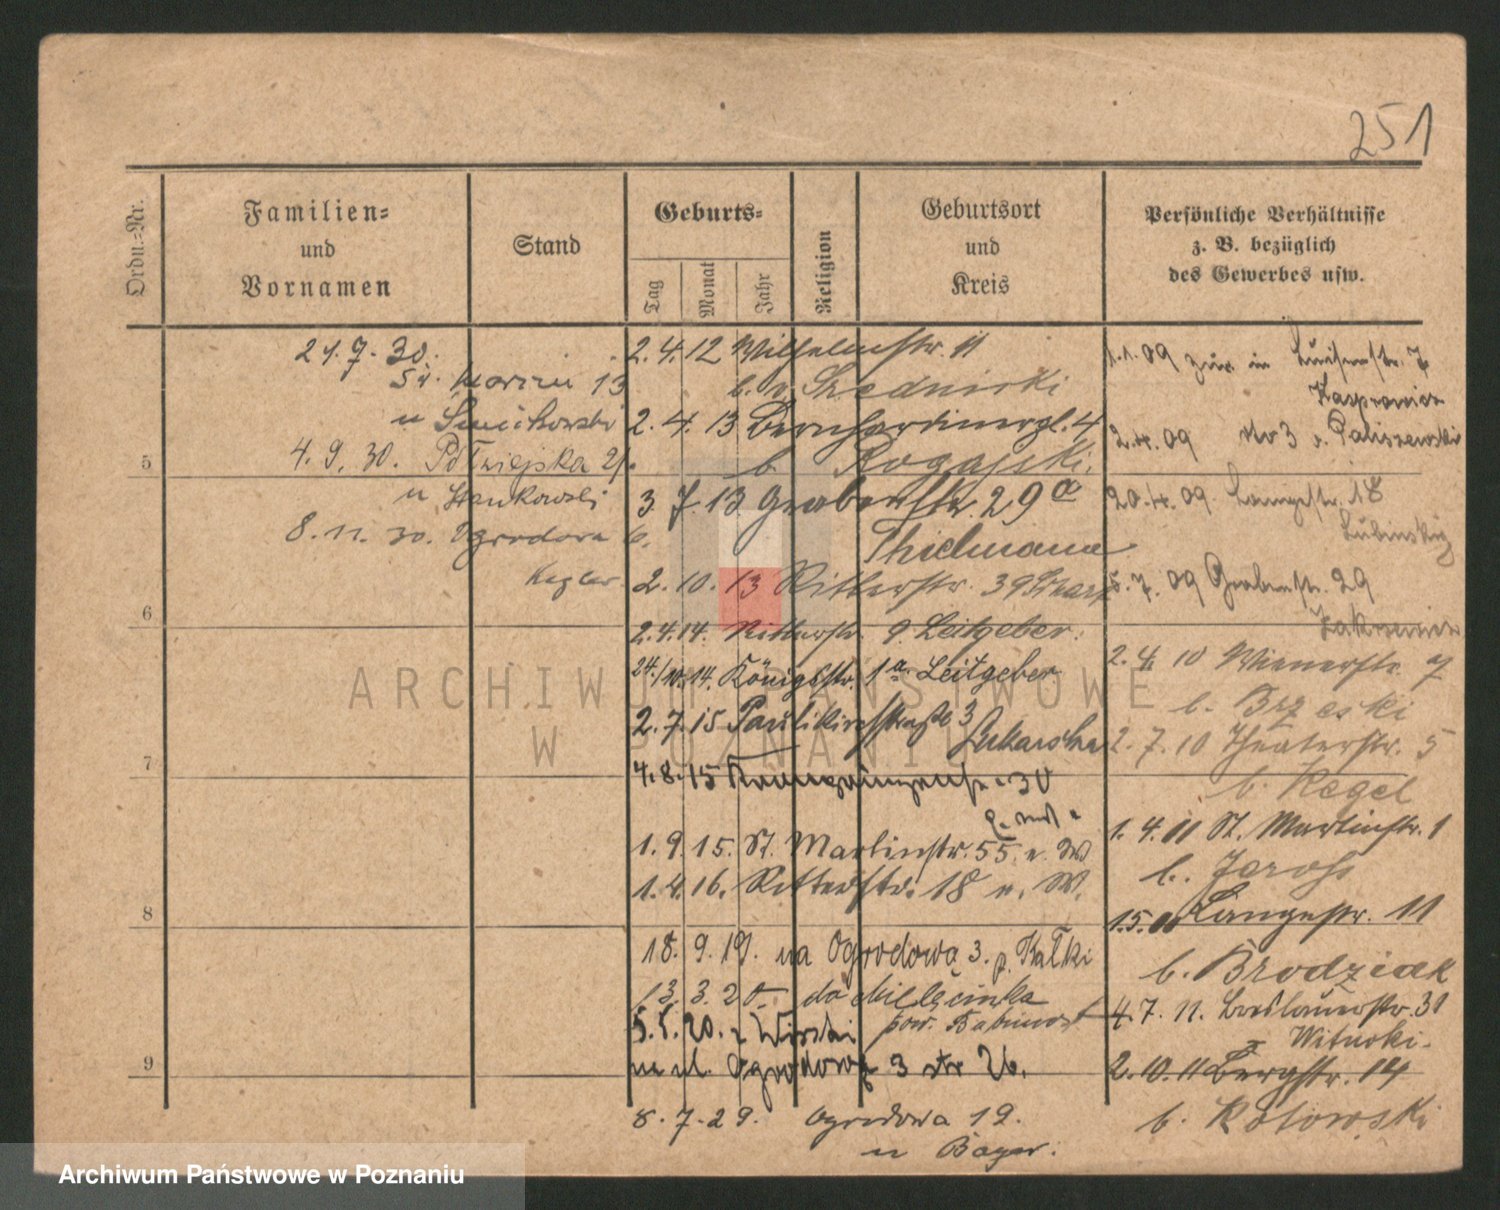 251
Ordn.-Nr.
Familien-
und
Vornamen
Stand
Geburts-
Tag
Monat
Jahr
Religion
Geburtsort
und
Kreis
Persönliche Verhältnisse
z. B. bezüglich
des Gewerbes usw.
21.7.30.
Św. Marcin 13
u
4.9.30. Półwiejska 21.
u Stankowski
8.11.30. Ogrodowa 6.
5
6
7
8
9
2.4.12 Wilhelmstr. 11
b. v. Szednirski
2.4.13 Bernhardinerpl. 4
b. Rogajski.
3 7 13 Grabenstr. 29a
Thielmann
2.10.13 Ritterstr. 39
2.4.14. Ritterstr. 9 Leitgeber.
24./10.14. Königsstr. 1a. Leitgeber
2.7.15 Paulikirchstraße 3
4.8.15 30
1.9.15. St. Martinstr. 55. u. W
1.4.16. Ritterstr. 18 u. W.
18.9.19. na Ogrodową 3. p. Kałki
13.3.20 do
pow. Babimost
5.5.20. z
na ul. Ogrodową 3 26.
8.7.29. Ogrodowa 19.
u Bayer.
1.1.09 zur. in Luisenstr. 7
Kasprowicz
2.4.09 No 3 v. Paliszewski
20.4.09. Langestr. 18
Lubinsky
5.7.09 Grabenstr. 29
2.4.10 Wienerstr. 7
b. Brzeski
2.7.10 Theaterstr. 5
b. Kegel
1.4.11 St. Martinstr. 1
b. Jerosz
Langestr. 11
b. Brodziak
4.7.11. Breslauerstr. 31
Wituski.
2.10.11 Bergstr. 14
b. Kotowski
ARCHIWUM PAŃSTWOWE
W POZNANIU
Archiwum Państwowe w Poznaniu